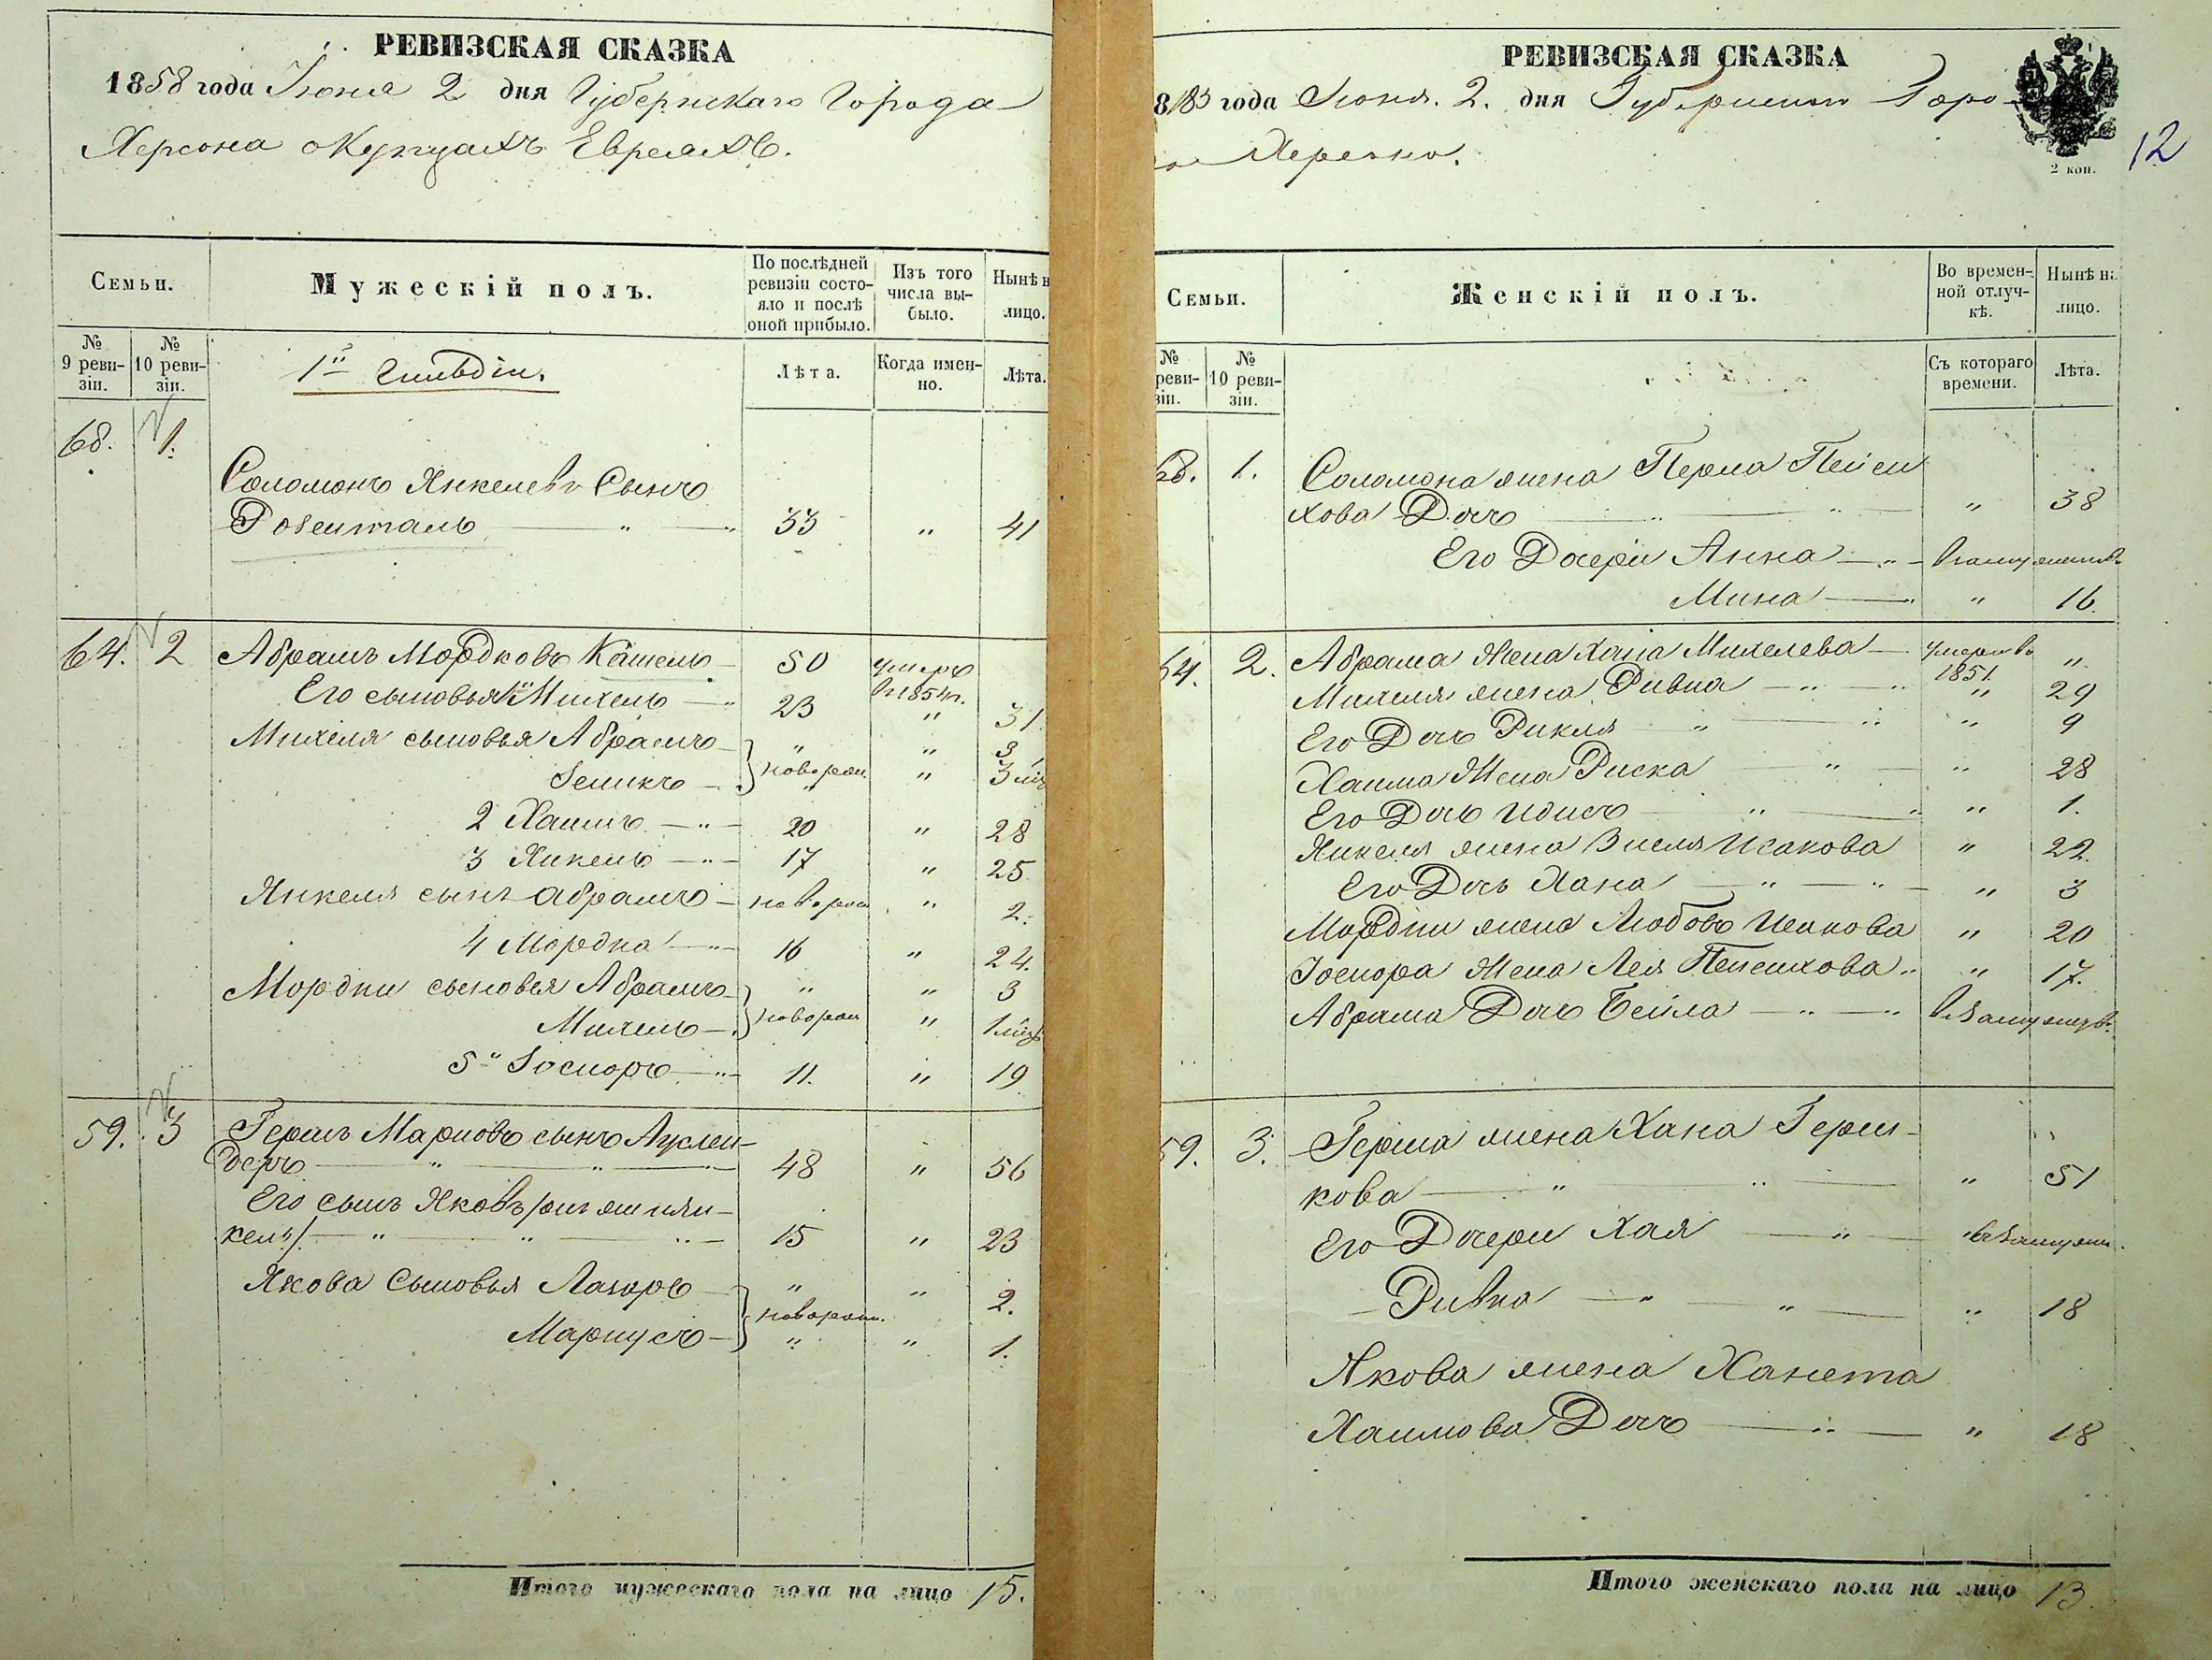 РЕВИЗСКАЯ СКАЗКА
1858 года Іюня 2 дня Губернскаго Города
Херсона о Купцахъ Евреяхъ.
Семьи.
Мужескій полъ.
По послѣдней
ревизіи состо-
яло и послѣ
оной прибыло.
Изъ того
числа вы-
было.
Нынѣ н
лицо.
№
9 реви-
зіи.
№
10 реви-
зіи.
1й гильдіи.
Лѣта.
Когда имен-
но.
Лѣта.
68. 1.
Соломонъ Янкелевъ Сынъ
Розенталь 33 " 41
64. 2 Абрамъ Мордковъ Кашель 50 умеръ
Его сыновья 1й Михель 23 " 31
Михеля сыновья Абрамъ " " 3
новорож.
2 Хаимъ 20 " 28
3 Янкель 17 " 25
Янкеля сынъ Абрамъ новорож " 2.
4 Мордка 16 " 24.
Мордки сыновья Абрамъ " " 3
Михель новорож " 1 мѣс
5" Іосиоръ 11. " 19
59. 3 Гершъ Марковъ сынъ Ауслен-
деръ 48 " 56
Его сынъ Яковъ
кель) 15 " 23
Якова Сыновья Лазарь " " 2.
новорож.
Маркусъ " " 1.
Итого мужескаго пола на лицо 15.
РЕВИЗСКАЯ СКАЗКА
года Іюня. 2. дня Губернскаго Горо-
да Херсона.
2 коп.
12
Семьи.
Женскій полъ.
Во времен-
ной отлуч-
кѣ.
Нынѣ на
лицо.
№
реви-
зіи.
№
10 реви-
зіи.
Съ котораго
времени.
Лѣта.
68. 1. Соломона жена Перла Пейси
хова Дочь " 38
Его Дочери Анна взамужествѣ
Мина " 16.
64. 2. Абрама Жена Хана Михелева умерла въ "
1851.
Михеля жена Ривка " 29
Его Дочь Рикля " 9
Хаима Жена Риска " 28
Его Дочь Идисъ " 1.
Янкеля жена Зисля Исакова " 22.
Его Дочь Хана " 3
Мордки жена Любовь Исакова " 20
Іосиора Жена Лея Пейсихова " 17.
Абрама Дочь Бейла взамужеств.
59. 3. Герша жена Хана Герш-
кова " 51
Его Дочери Хая взамуж.
Ривка " 18
Якова жена Ханета
Хаимова Дочь " 18
Итого женскаго пола на лицо 13.